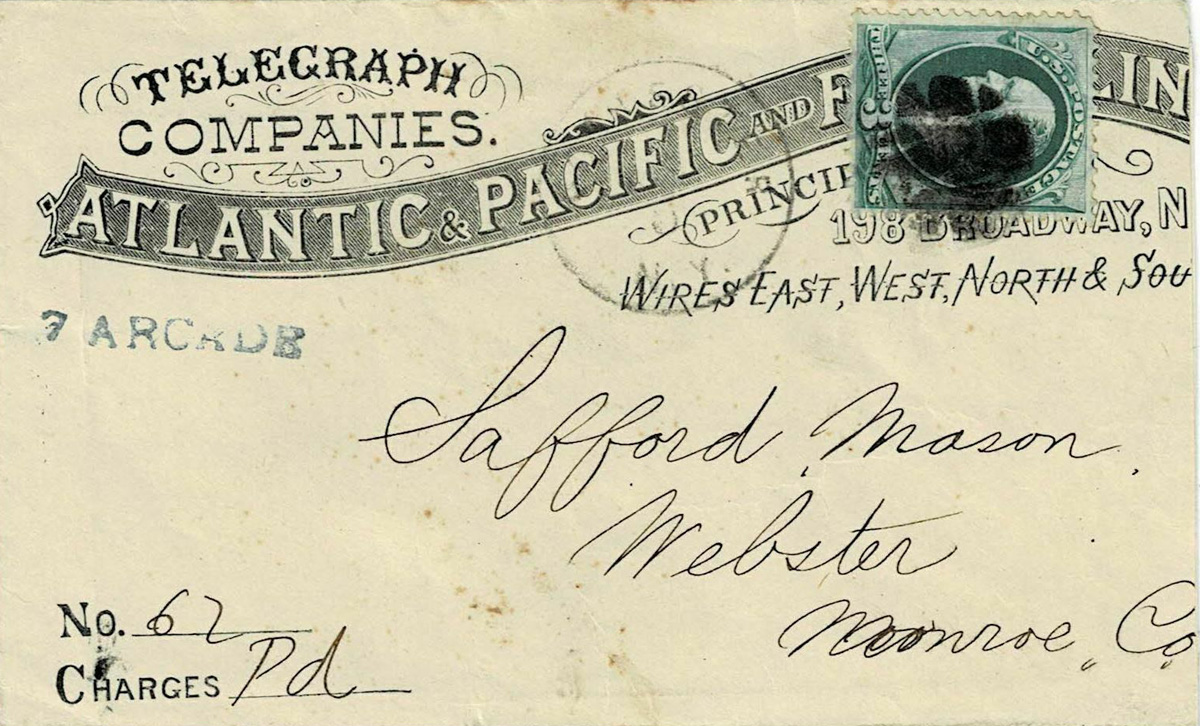 TELEGRAPH
COMPANIES.
ATLANTIC & PACIFIC AND F LIN
PRINCIP
198 BROADWAY, N
WIRES EAST, WEST, NORTH & SOU
U.S. POSTAGE
THREE 3 CENTS
N.Y.
7 ARCADE
Safford Mason.
Webster
Monroe, Co
No. 62
CHARGES Pd